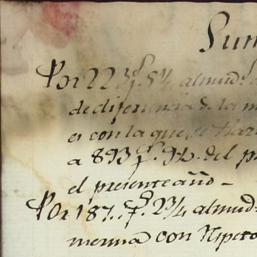 Sum
Por 223 f.s 8¼ almud.
de diferencia de la m
es con la que se
a 893 f.s 9½ del p
el presente año –
Por 187„ f.s 2¼ almud
merma con respeto